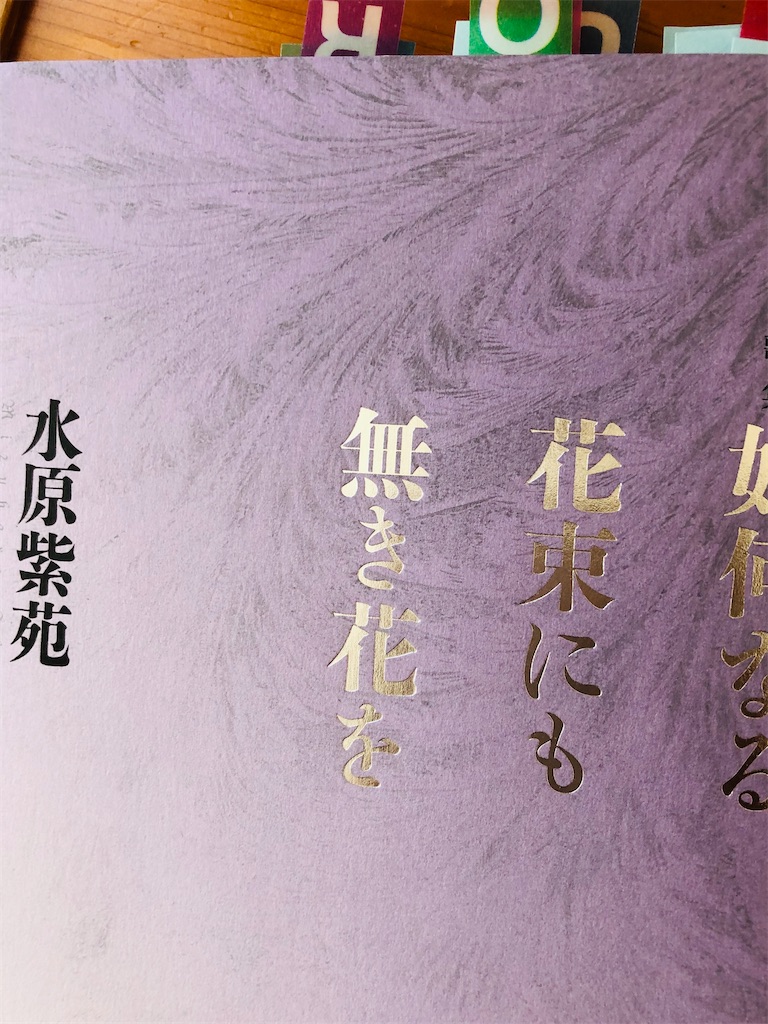 如何なる
花束にも
無き花を
水原紫苑
R
O